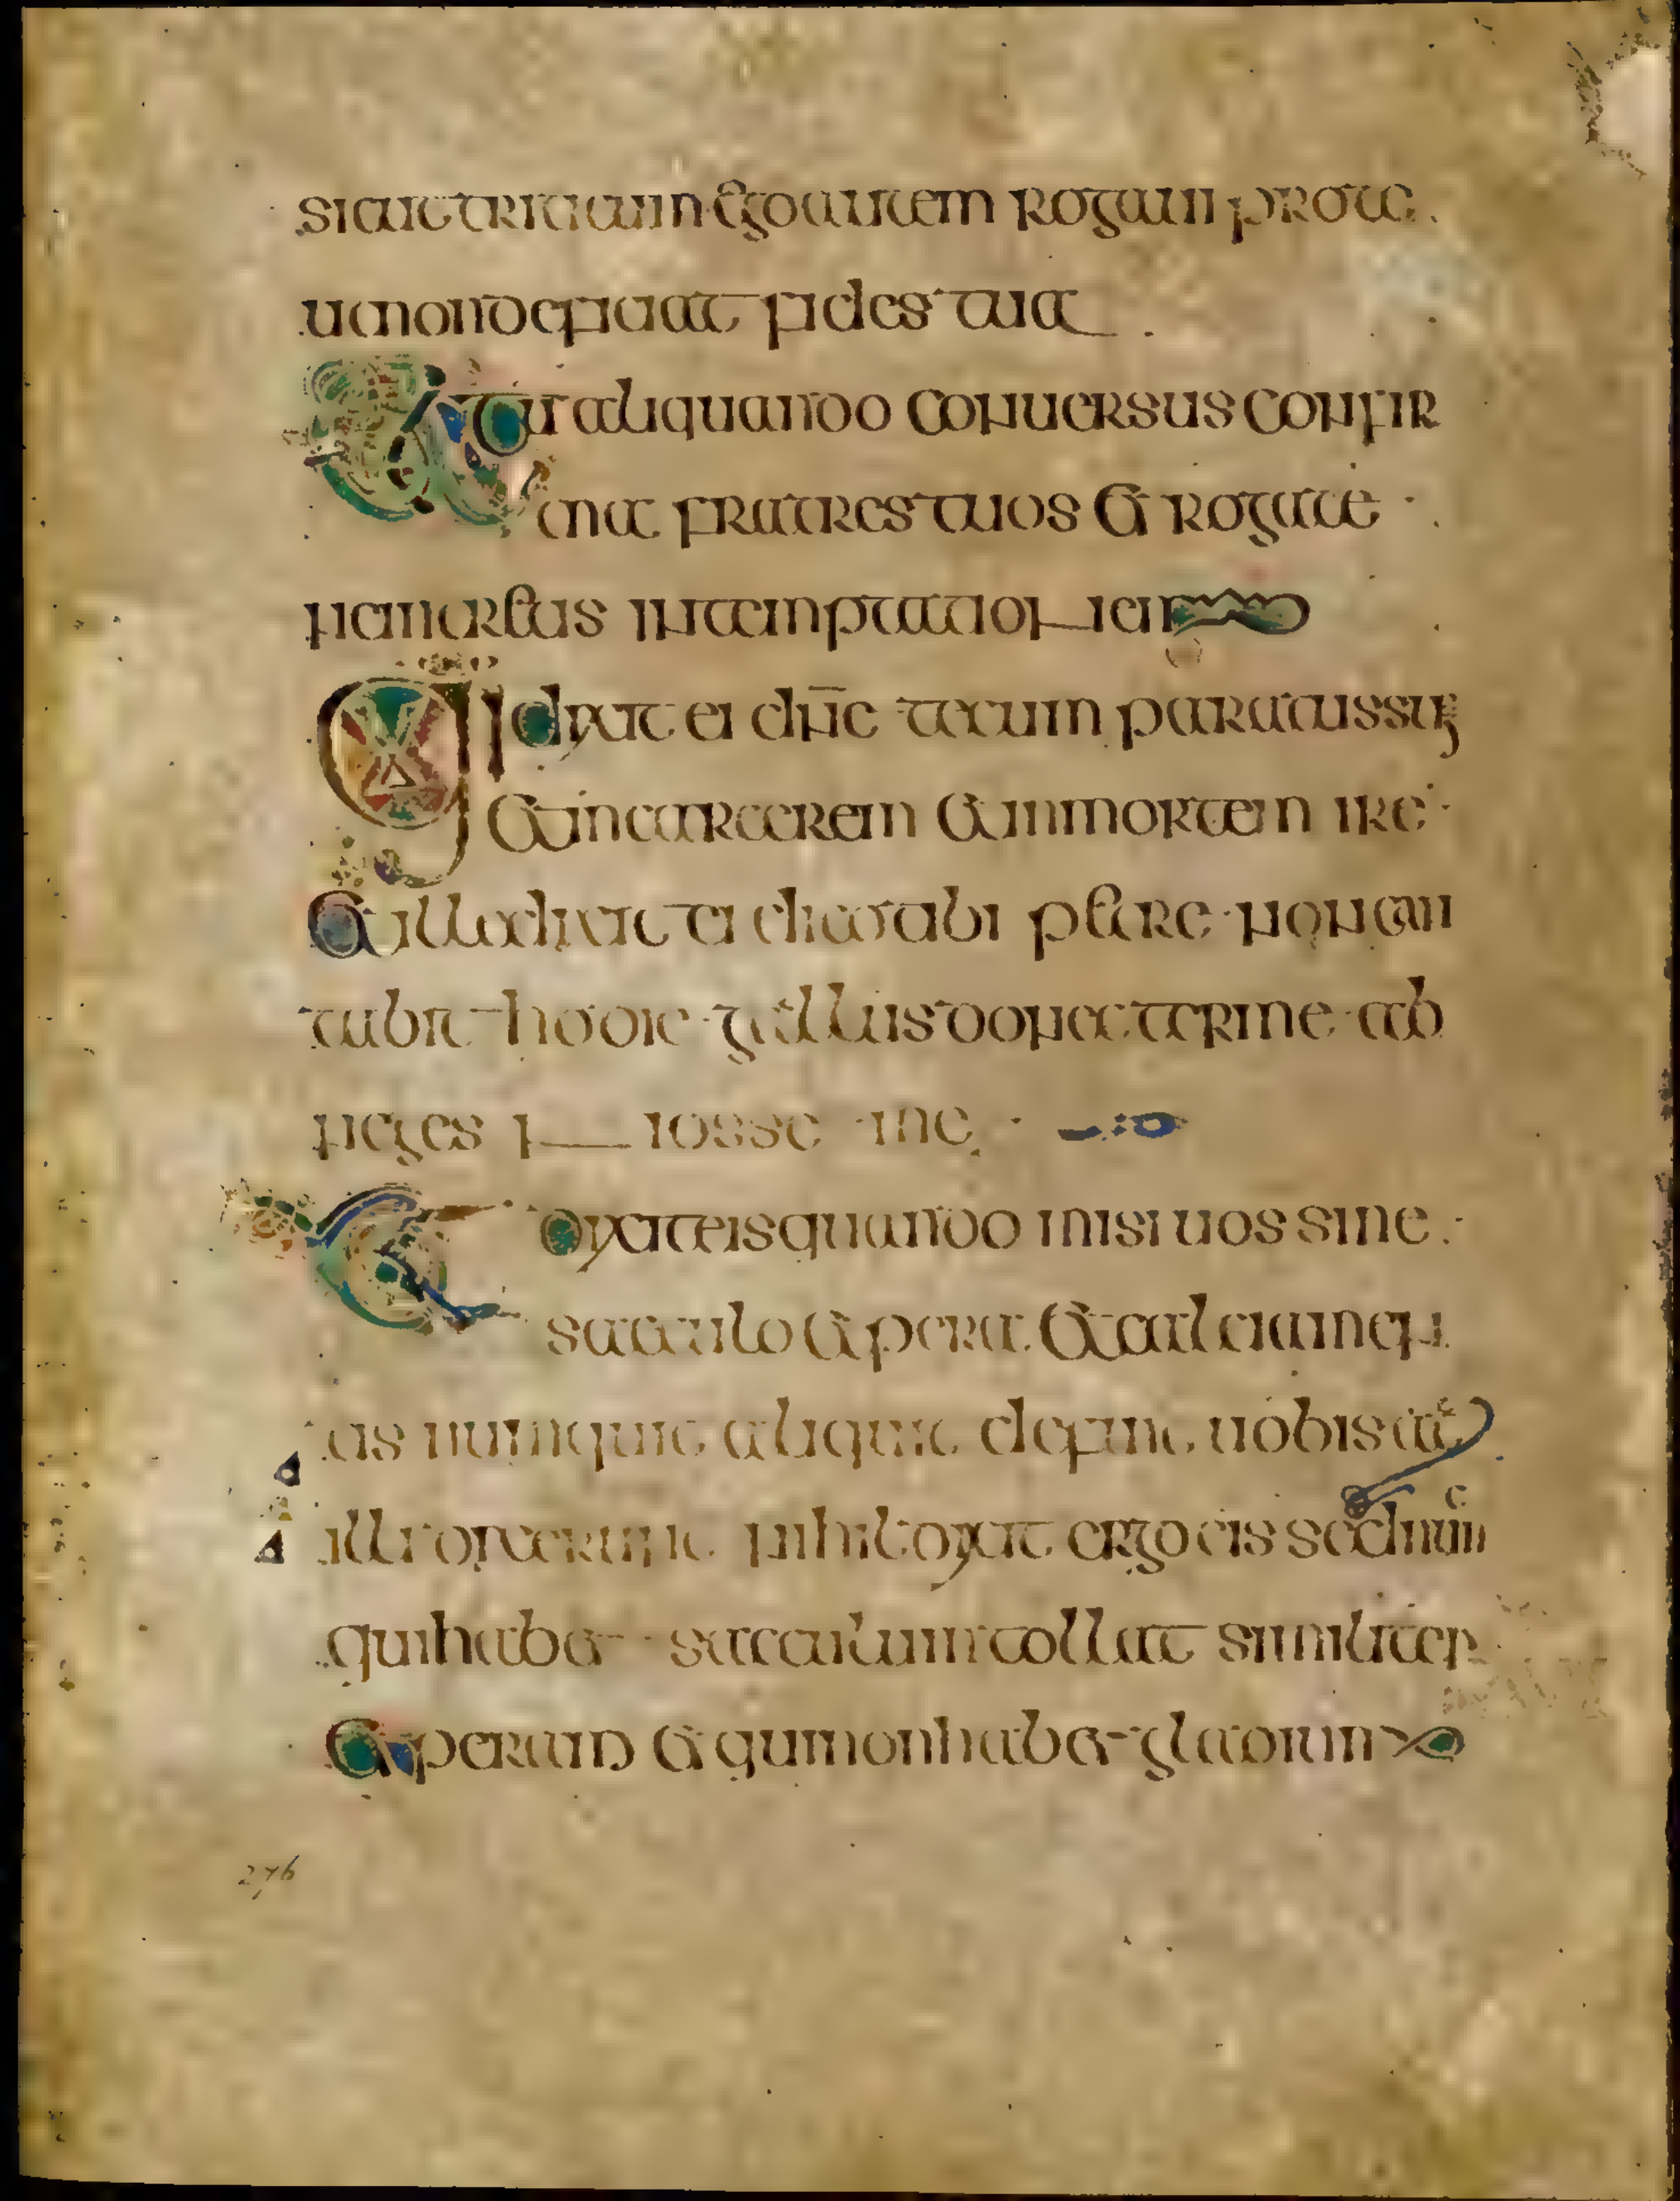 sicut triticum ego autem rogaui pro te
ut non deficiat fides tua
Et tu aliquando conuersus confir
ma fratres tuos et rogate
ne intretis in temptationem
Qui dixit ei dne tecum paratus sum
et in carcerem et in mortem ire
Et ille dixit ei dico tibi petre non can
tabit hodie gallus donec ter me ab
neges nosse me
Et dixit eis quando misi uos sine
sacculo et pera et calciamen
tis numquit aliquit defuit uobis at
illi dixerunt nihil dixit ergo eis sed nunc
qui habet sacculum tollat similiter
et peram et qui non habet gladium
276